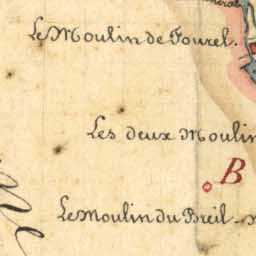 Le Moulin de Fourel.
Les deux Moulin
B
Le Moulin du Breil